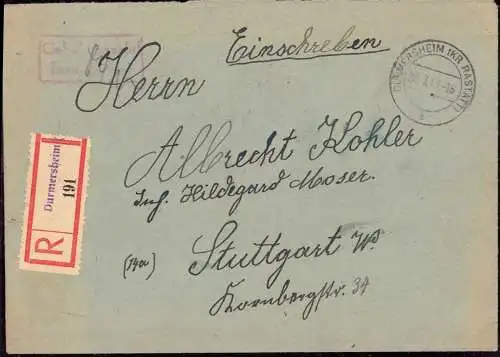 Einschreiben
DURMERSHEIM (KR RASTATT)
Herrn
Albrecht Kohler
Inh. Hildegard Moser.
(14a)
Stuttgart W.
Kornbergstr. 34
R
Durmersheim
191